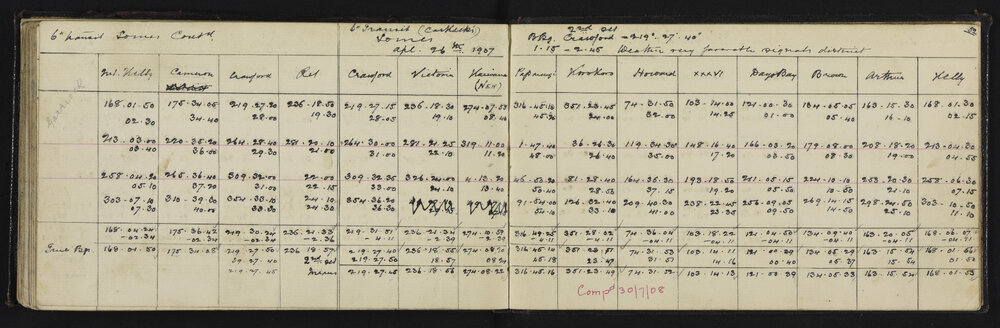 6" Transit Somes Contd.
6" Transit (Carkeek's) 2nd Set 52
Somes B Bg. Crawford = 219° 27' 40"
Apl. 26th 1907 1.15 - 2.45 Weather very favorable signals distinct
Kelly Cameron Crawford Rel Crawford Victoria Haurana Papanui Korokoro Howard XXXVI Days Bay Brown Arthur Kelly
(New)
168.01.50 175.34.05 219.27.20 236.18.50 219.27.15 236.18.30 274.07.53 316.45.16 351.23.45 74.31.50 103.14.00 121.00.30 134.05.05 163.15.30 168.01.30
02.30 34.40 28.00 19.30 28.05 19.10 08.40 45.26 24.00 32.00 14.25 01.00 05.40 16.10 02.15
213.03.00 220.35.20 264.28.40 281.20.10 264.30.00 281.21.25 319.11.00 1.47.40 36.26.30 119.34.30 148.16.40 166.03.20 179.08.00 208.18.20 213.04.30
03.40 36.00 29.30 21.00 31.00 22.10 11.20 48.00 26.40 35.00 17.20 03.50 08.30 19.00 04.55
258.04.20 265.36.40 309.32.00 22.00 309.32.35 326.24.00 4.13.20 46.50.20 81.28.40 164.35.30 193.18.50 224.10.10 253.20.30 258.06.30
05.10 37.20 31.00 22.15 33.00 24.10 13.40 50.40 28.50 37.15 19.20 05.50 10.50 21.10 07.15
303.07.10 310.39.30 354.33.10 24.10 354.36.20 91.54.00 126.32.40 209.40.30 238.22.45 256.09.05 269.14.15 298.24.50 303.10.50
07.30 40.00 24.30 36.30 54.10 33.10 41.00 23.35 09.50 14.50 25.10 11.10
168.04.24 175.36.42 219.30.24 236.21.33 219.31.51 236.21.34 274.10.59 316.49.25 351.28.02 74.36.04 103.18.22 121.04.50 134.09.40 163.20.05 168.06.07
-02.34 -02.34 -02.34 -2.36 -4.11 -2.39 -4.11 -4.11 -04.11 -04.11 -04.11 -04.11 -04.11 -04.11
True Bgs. 168.01.50 175.34.08 219.27.50 236.18.57 219.27.40 236.18.55 274.08.20 316.45.14 74.31.53 103.14.11 134.05.29 163.15.54
27.40 2nd set 219.27.50 18.57 08.24 45.18 23.47 31.51 14.16 00.40 05.37 15.54 01.50
219.27.45 means 219.27.45 236.18.56 274.08.22 316.45.16 351.23.49 74.31.52 103.14.13 121.00.39 134.05.33 163.15.54 168.01.53
Compd 30/7/08